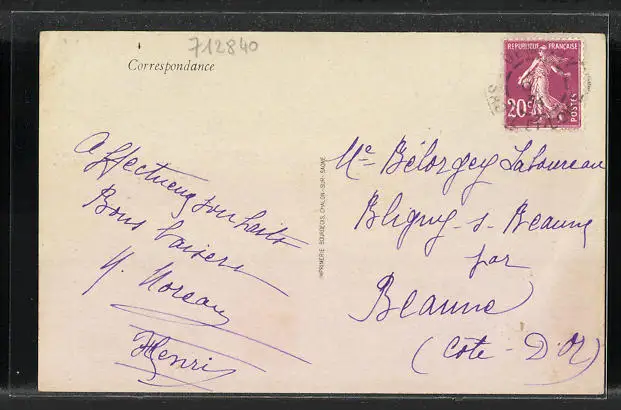 712840
Correspondance
REPUBLIQUE FRANÇAISE
20c
POSTES
Affectueux souhaits
Bons baisers
H. Moreau
Henri
IMPRIMERIE BOURGEOIS, CHALON-SUR-SAONE
Me Bélorgey Laboureau
Bligny-s-Beaune
par
Beaune
(Côte-D'Or)